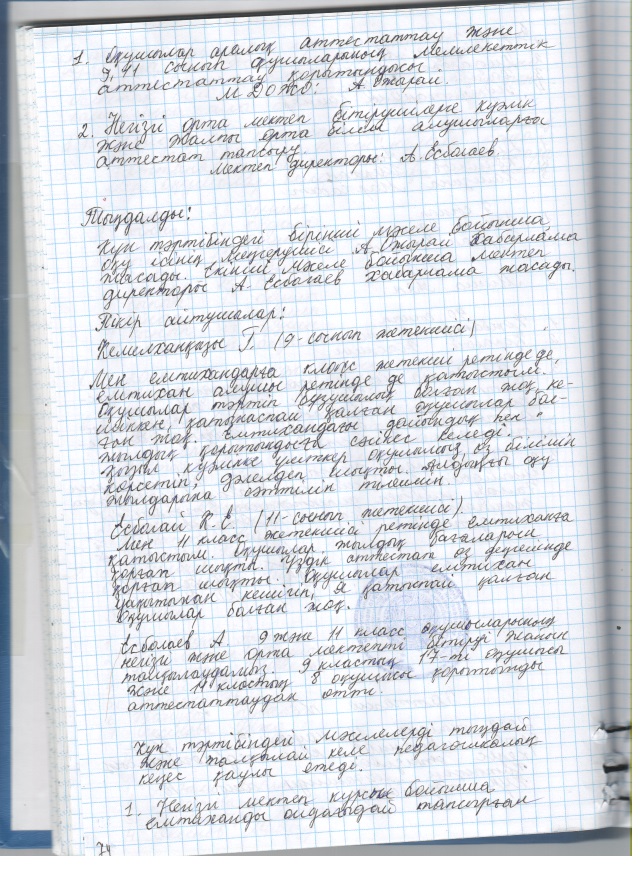 1. Оқушылар аралық аттестаттау және
9, 11 сынып оқушыларының мемлекеттік
аттестаттау қорытындысы.
МДОЖО: А
2. Негізгі орта мектеп бітірушілерге куәлік
және жалпы орта білім алушыларға
аттестат тапсыру.
Мектеп директоры: А. Есболаев.
Тыңдалды:
Күн тәртібіндегі бірінші мәселе бойынша
оқу ісінің меңгерушісі А. хабарлама
жасады. Екінші мәселе бойынша мектеп
директоры А. Есболаев хабарлама жасады.
Пікір айтушалар:
Кемилханқызы Г. (9-сынып жетекшісі)
Мен емтихандарға класс жетекші ретінде де,
емтихан алушы ретінде де қатыстым.
Оқушылар тәртіп бұзушылық болған жоқ, ке-
шіккен, қатыспай қалған оқушылар бол-
ған жоқ. Емтихандағы дайындық пен
жылдық қорытындыға сәйкес келеді.
Қызыл куәлікке үміткер оқушымыз өз білімін
көрсетіп, дәлелдеп шықты. Алдыңғы оқу
жылдарына сәттілік тілеймін.
Есболай К. Е. (11-сынып жетекшісі).
Мен 11 класс жетекшісі ретінде емтиханға
қатыстым. Оқушылар жылдық бағаларын
қорғап шықты. Үздік аттестат өз деңгейінде
қорғап шықты. Оқушылар емтихан
уақытынан кешігіп, я қатыспай қалған
оқушылар болған жоқ.
Есболаев А. 9 және 11 класс оқушыларының
негізгі және орта мектепті бітіруді
талқылаудамыз. 9 кластың 17-ті оқушысы
және 11 кластың 8 оқушысы қорытынды
аттестаттаудан өтті.
Күн тәртібіндегі мәселелерді тыңдай
және талқылай келе педагогикалық
кеңес қаулы етеді.
1. Негізгі мектеп курсы бойынша
емтиханды ойдағыдай тапсырған
74